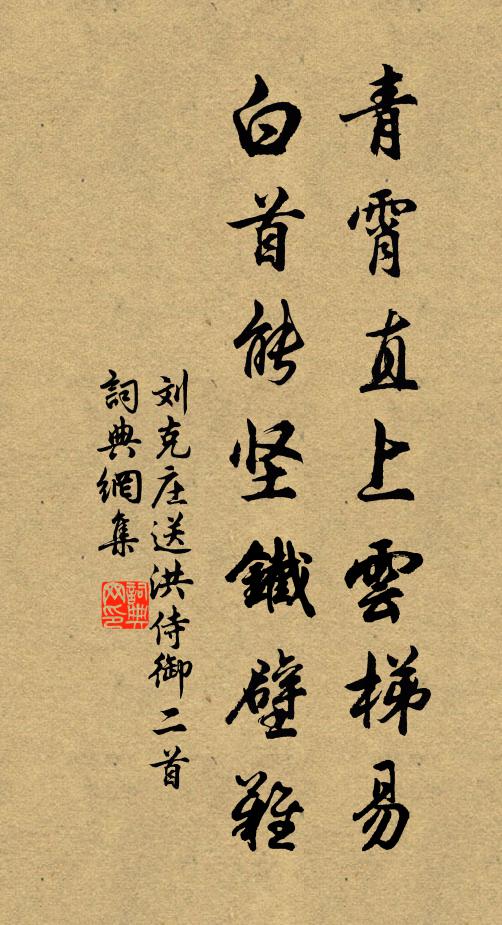 青霄直上雲梯易
白首能坚鐵壁難
刘克庄送洪侍御二首
詞典網集
詞典网印